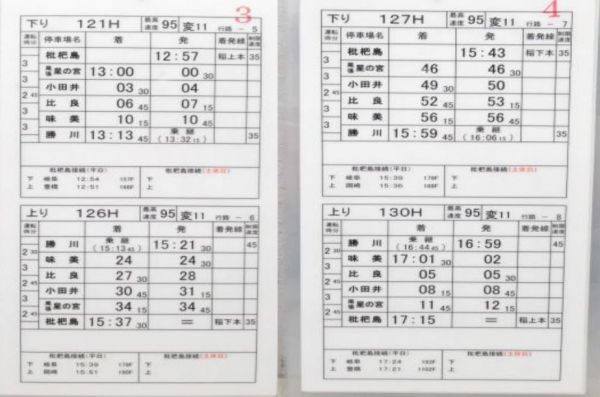 3
下り 121H 最高速度 95 変11 行路 - 5
運転時分 停車場名 着 発 着発線 制限速度
枇杷島 12:57 稲上本 35
3 尾張星の宮 13:00 00 30
3 小田井 03 30 04
2 45 比良 06 45 07 15
3 味美 10 15 10 45
3 勝川 13:13 45 乗継 (13:32 15) 35
枇杷島接続(平日) 枇杷島接続(土休日)
下 岐阜 12:54
上 豊橋 12:51
上り 126H 最高速度 95 変11 行路 - 6
運転時分 停車場名 着 発 着発線 制限速度
勝川 乗継 (15:13 45) 15:21 30 45
2 30 味美 24 24 30
3 比良 27 28
2 45 小田井 30 45 31 15
3 尾張星の宮 34 15 34 45
2 45 枇杷島 15:37 30 = 稲下本 35
枇杷島接続(平日) 枇杷島接続(土休日)
下 岐阜 15:39
上 岡崎 15:51
4
下り 127H 最高速度 95 変11 行路 - 7
運転時分 停車場名 着 発 着発線 制限速度
枇杷島 15:43 稲下本 35
3 尾張星の宮 46 46 30
3 小田井 49 30 50
2 45 比良 52 45 53 15
3 味美 56 15 56 45
3 勝川 15:59 45 乗継 (16:06 15) 35
枇杷島接続(平日) 枇杷島接続(土休日)
下 岐阜 15:39
上 岡崎 15:36
上り 130H 最高速度 95 変11 行路 - 8
運転時分 停車場名 着 発 着発線 制限速度
勝川 乗継 (16:44 45) 16:59 45
2 30 味美 17:01 30 02
3 比良 05 05 30
2 45 小田井 08 15 08 45
3 尾張星の宮 11 45 12 15
2 45 枇杷島 17:15 = 稲上本 35
枇杷島接続(平日) 枇杷島接続(土休日)
下 岐阜 17:24
上 豊橋 17:21